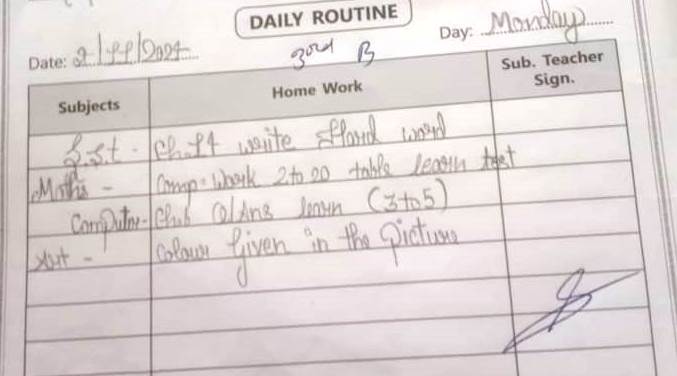 DAILY ROUTINE
Date: 2/ /2024
3rd B
Day: Monday
Subjects
Home Work
Sub. Teacher
Sign.
S.s.t - Ch.f4 write Hard word
Maths - Comp. Work 2 to 20 table learn test
Computer - Ch.6 Q/Ans learn (3 to 5)
Art - Colour given in the picture